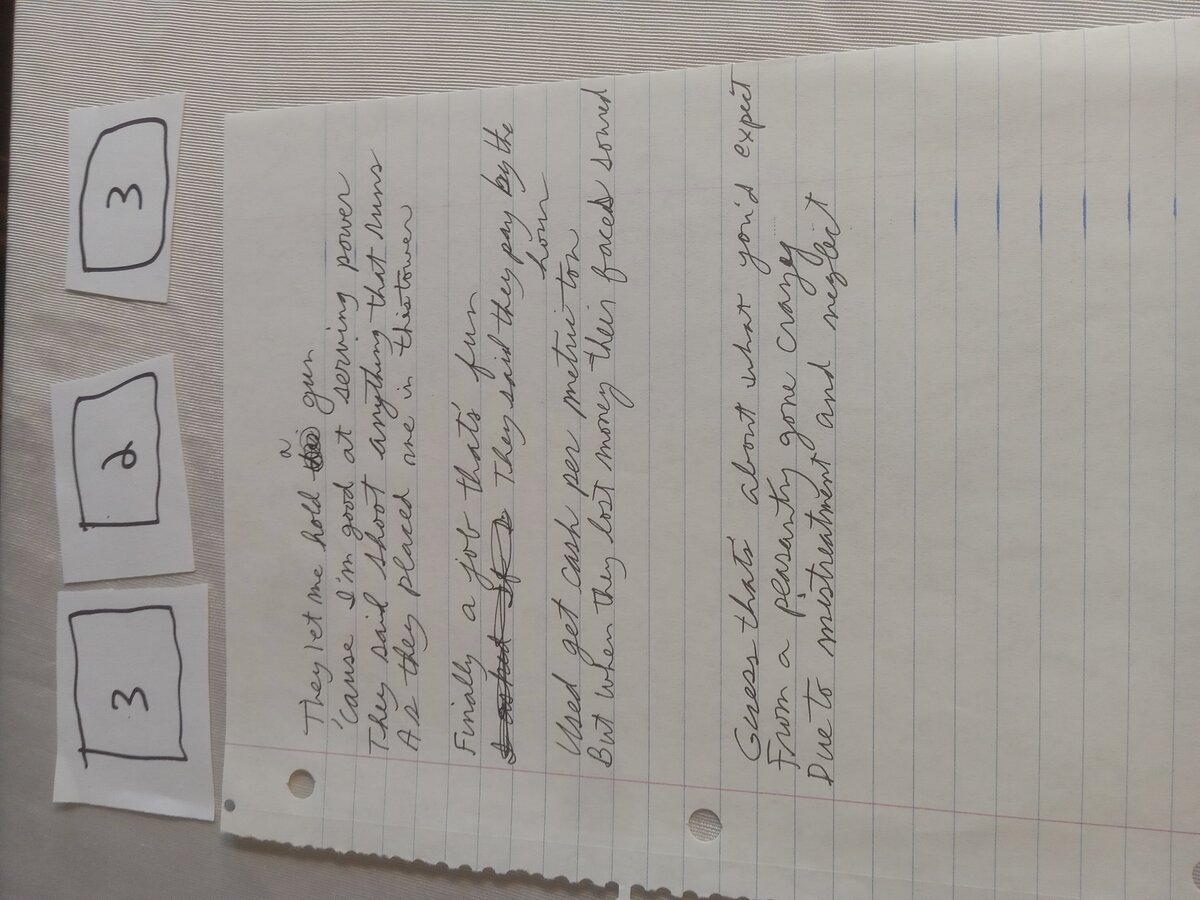 3
2
3
They let me hold a gun
'Cause I'm good at serving power
They said shoot anything that runs
As they placed me in this tower
Finally a job that's fun
They said they pay by the
hour
Used get cash per metric ton
But when they lost money their faces soured
Guess that's about what you'd expect
From a peasantry gone crazy
Due to mistreatment and neglect